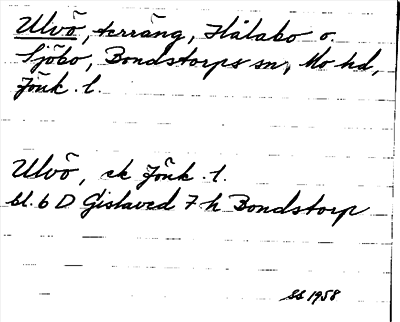 Ulvö, terräng, Hålabo o.
Sjöbo, Bondstorps sn, Mo hd,
Jönk. l.
Ulvö, ek Jönk. l.
bl. 6 D Gislaved 7 h Bondstorp
SS 1958